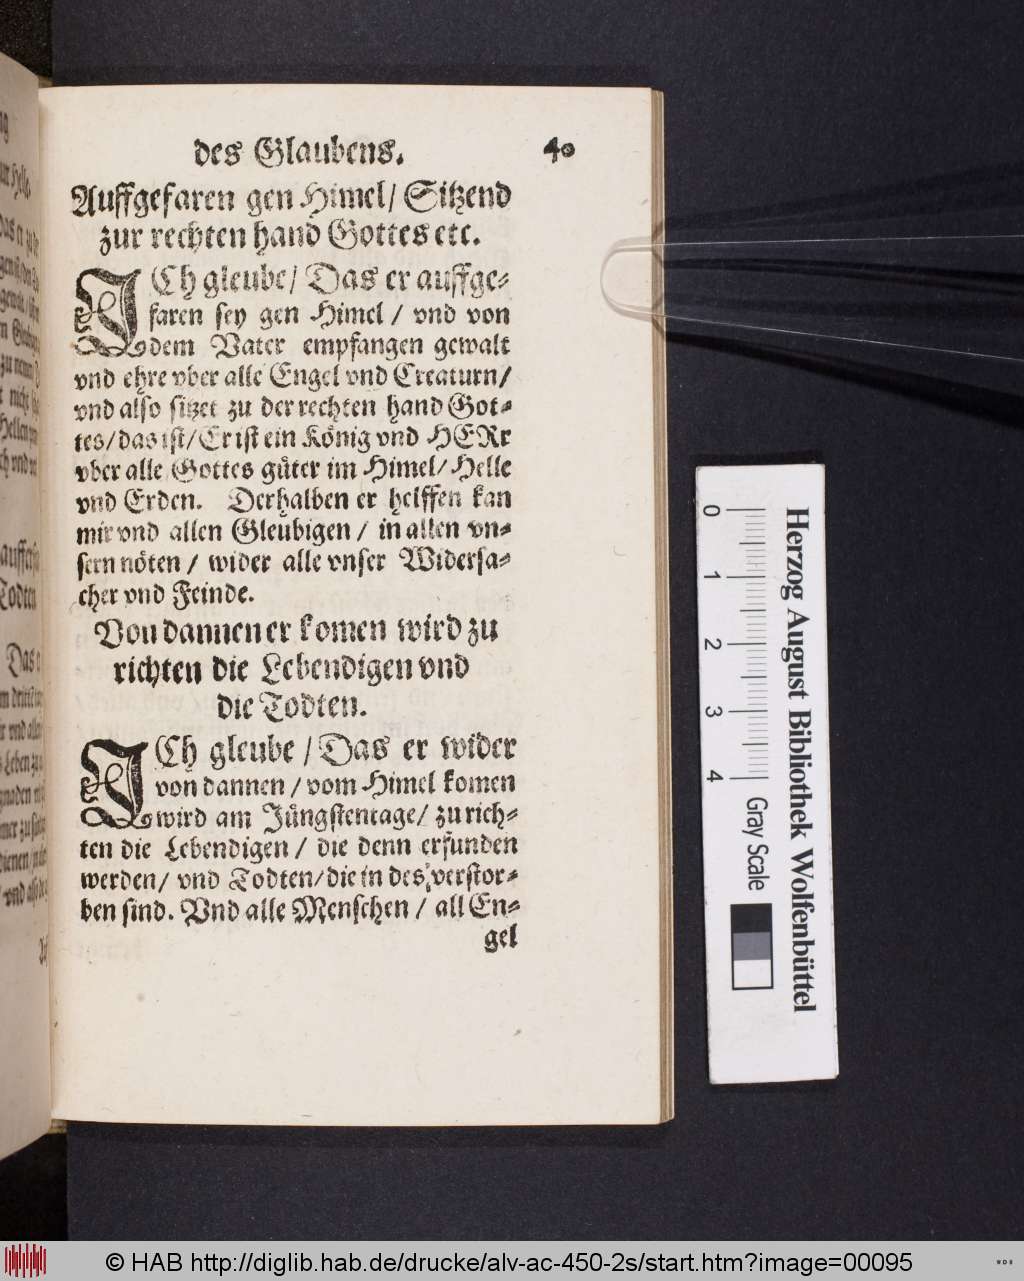 des Glaubens. 40
Auffgefaren gen Himel/ Sitzend
zur rechten hand Gottes etc.
ICh gleube/ Das er auffge-
faren sey gen Himel / vnd von
dem Vater empfangen gewalt
vnd ehre vber alle Engel vnd Creaturn/
vnd also sitzet zu der rechten hand Got-
tes/ das ist/ Er ist ein König vnd HERr
vber alle Gottes güter im Himel/ Helle
vnd Erden. Derhalben er helffen kan
mir vnd allen Gleubigen / in allen vn-
sern nöten / wider alle vnser Widersa-
cher vnd Feinde.
Von dannen er komen wird zu
richten die Lebendigen vnd
die Todten.
ICh gleube / Das er wider
von dannen / vom Himel komen
wird am Jüngstentage/ zu rich-
ten die Lebendigen / die denn erfunden
werden/ vnd Todten/ die in des verstor-
ben sind. Vnd alle Menschen / all En-
gel
0 1 2 3 4
Herzog August Bibliothek Wolfenbüttel
Gray Scale
© HAB http://diglib.hab.de/drucke/alv-ac-450-2s/start.htm?image=00095